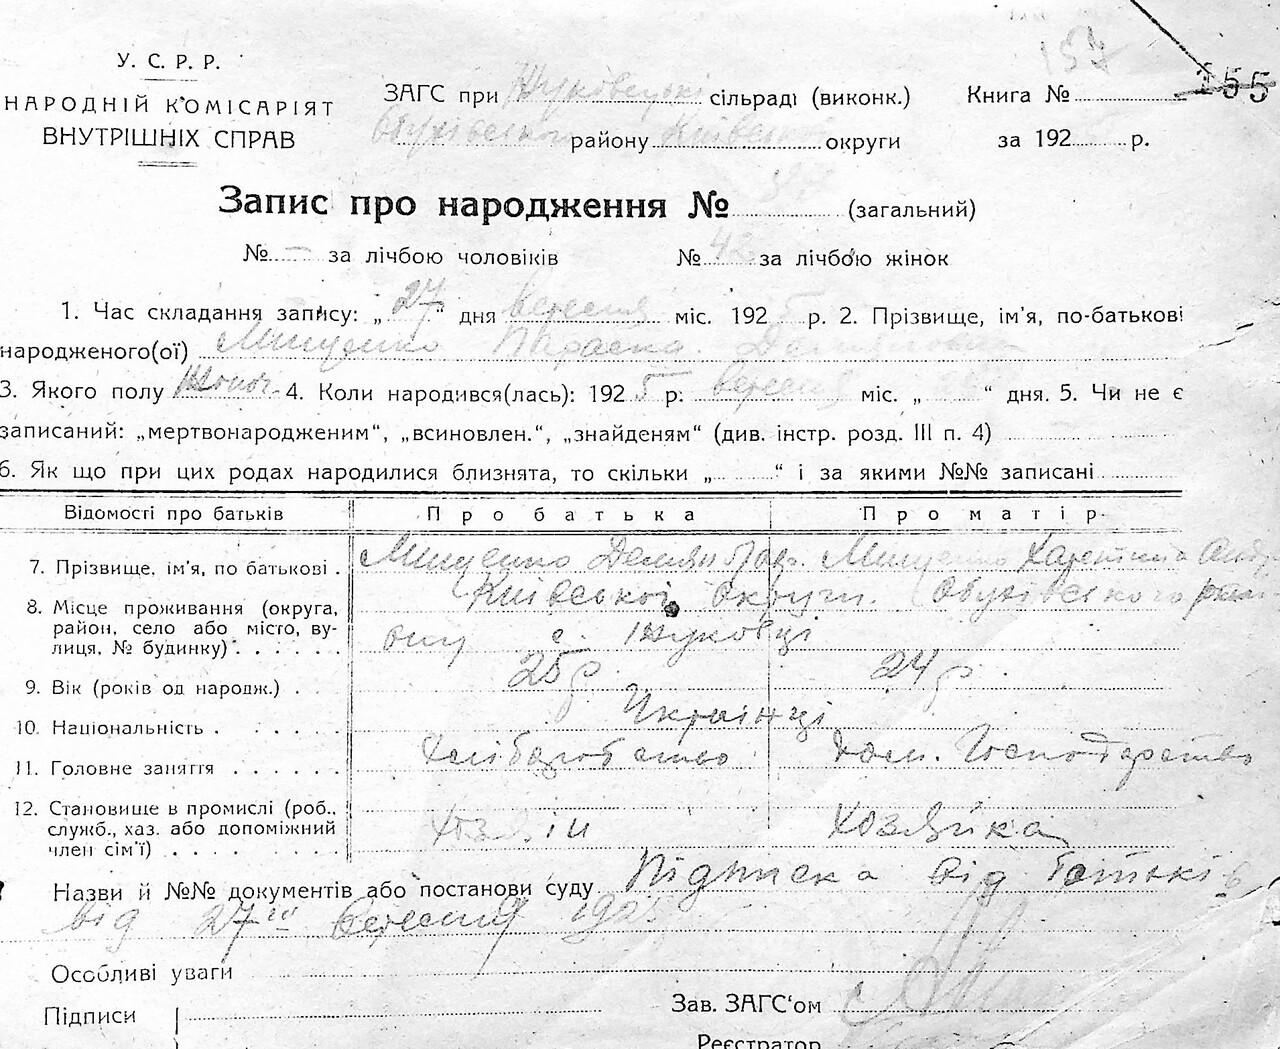 157
155
У. С. Р. Р.
НАРОДНІЙ КОМІСАРІЯТ
ВНУТРІШНІХ СПРАВ
ЗАГС при Жуковецькі сільраді (виконк.) Книга №
Обухівського району Київської округи за 192 р.
Запис про народження № (загальний)
№ – за лічбою чоловіків № 42 за лічбою жінок
1. Час складання запису: „27“ дня вересня міс. 192 р. 2. Прізвище, ім'я, по-батькові
народженого(ої) Мищенко Параска Демяновна
3. Якого полу Жіноч. 4. Коли народився(лась): 1925 р. вересня міс. „ “ дня. 5. Чи не є
записаний: „мертвонародженим“, „всиновлен.“, „знайденям“ (див. інстр. розд. III п. 4)
6. Як що при цих родах народилися близнята, то скільки „ “ і за якими №№ записані
Відомості про батьків Про батька Про матір
7. Прізвище, ім'я, по батькові . Мищенко Демян Мищенко
8. Місце проживання (округа, Київської округи. Обухівського рай
район, село або місто, ву- ону с. Жуковці
лиця, № будинку) . . . . . .
9. Вік (років од народж.) . . 25 р 24 р.
10. Національність . . . . . . Українці
11. Головне заняття . . . . . . Хліборобство Дом. Господарство
12. Становище в промислі (роб., Хозяїн Хозяйка
служб., хаз. або допоміжний
член сім'ї) . . . . . . . .
Назви й №№ документів або постанови суду Підписка від батьків
від 27го вересня 1925
Особливі уваги
Підписи
Зав. ЗАГС'ом
Реєстратор